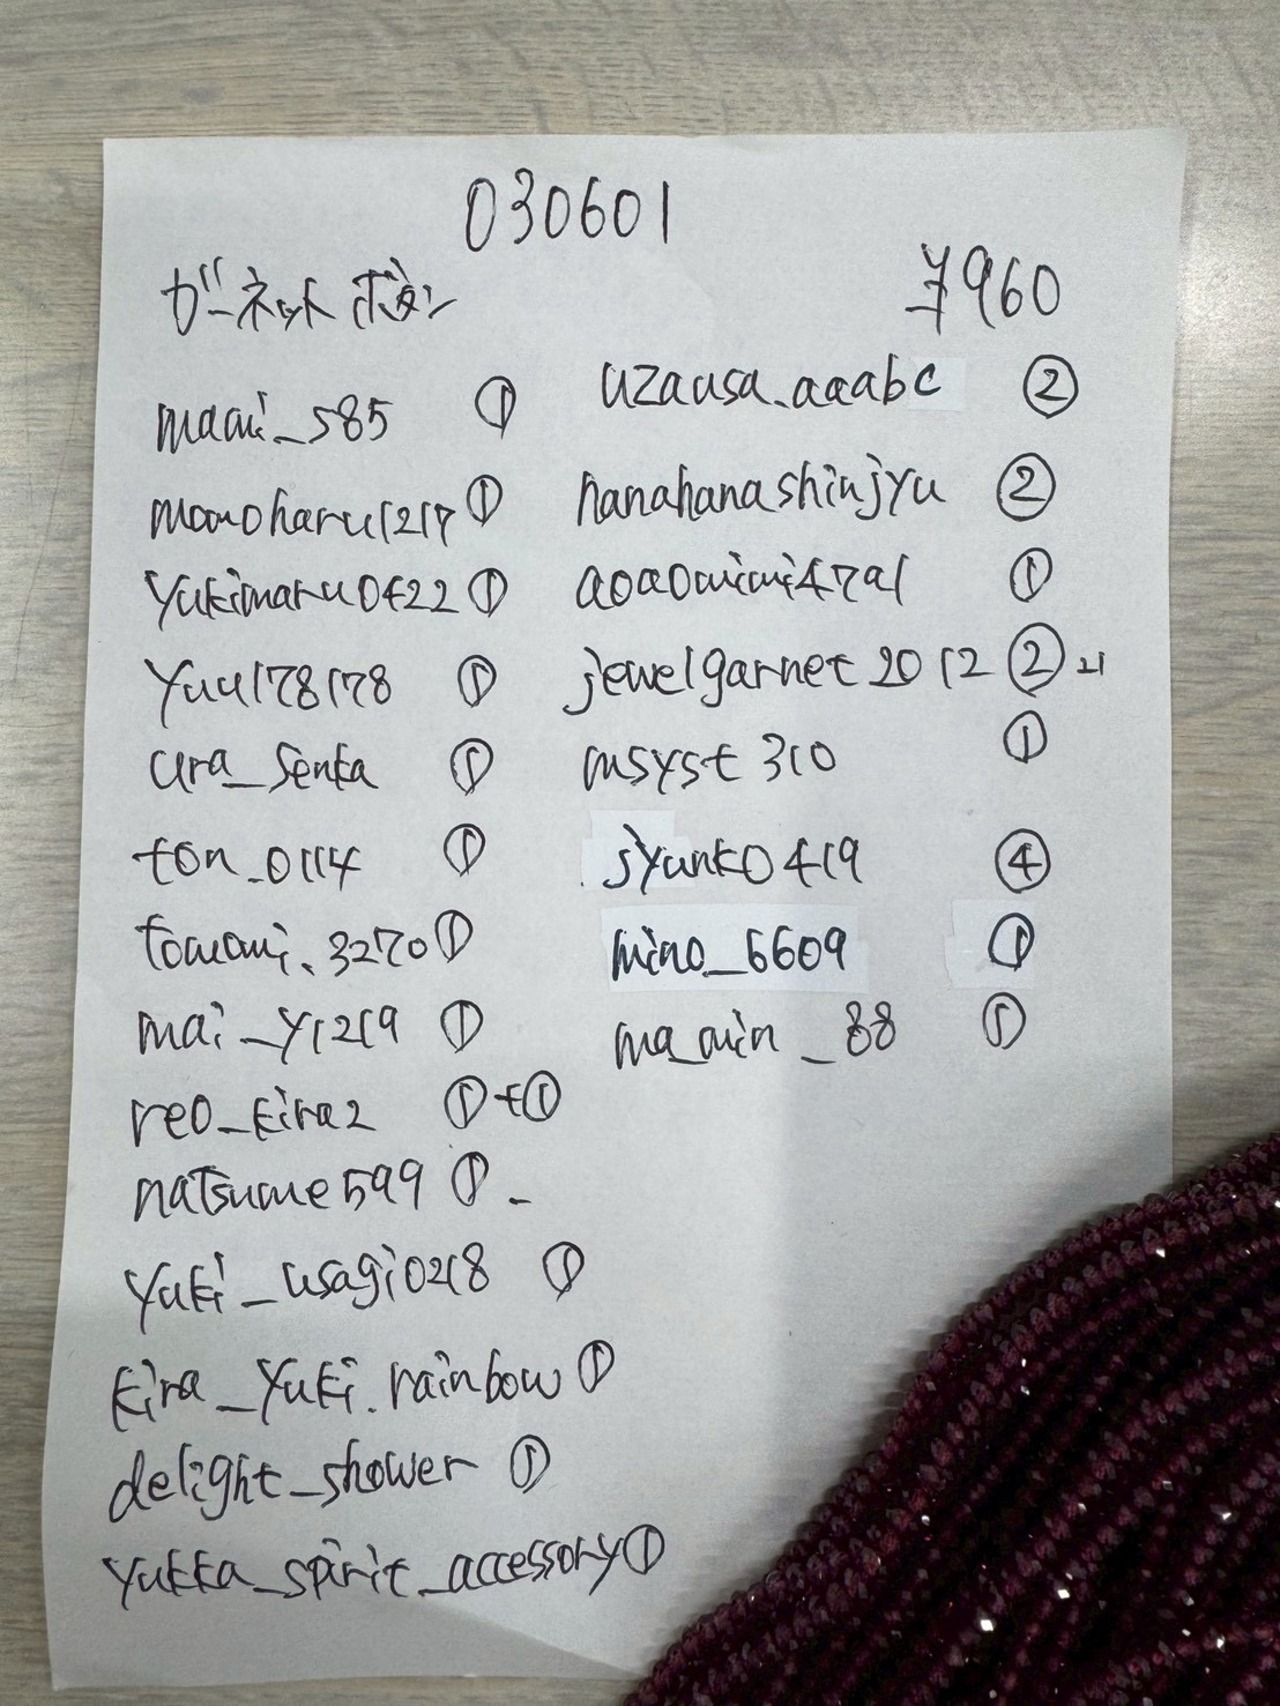 030601
ガーネットボタン
¥960
maai_585 ①
momoharu1217 ①
yukimaru0422 ①
yuu178178 ①
ura_senka ①
ton_0114 ①
tomomi.3270 ①
mai_y1219 ①
reo_kira2 ①+①
natsume599 ① -
yuki_usagi0218 ①
kira_yuki.rainbow ①
delight_shower ①
yukka_spirit_accessory ①
uzausa_aaabc ②
hanahanashinjyu ②
aoaomimi4791 ①
jewelgarnet2012 ②
msyst310 ①
jyunk0419 ④
mino_6609 ①
ma_min_88 ①